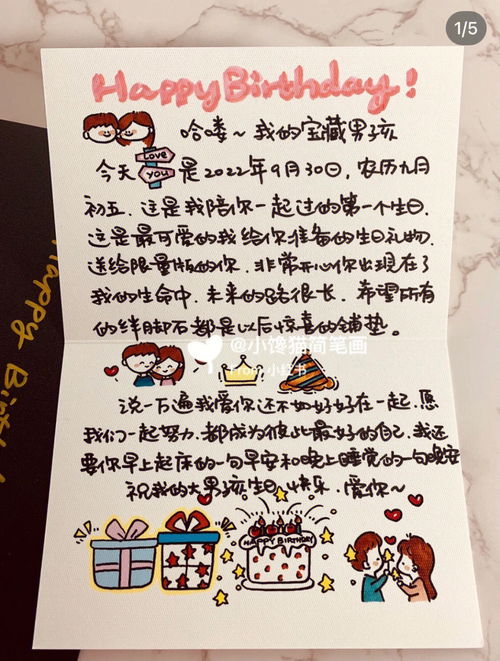 1/5
Happy Birthday!
哈喽~我的宝藏男孩
今天 Love you 是2022年9月30日，农历九月
初五.这是我陪你一起过的第一个生日.
这是最可爱的我给你准备的生日礼物.
送给限量版的你.非常开心你出现在了
我的生命中.未来的路很长.希望所有
的绊脚石都是以后惊喜的铺垫。
@小馋猫简笔画
From小红书
说一万遍我爱你还不如好好在一起.愿
我们一起努力.都成为彼此最好的自己.我还
要你早上起床的一句早安和晚上睡觉的一句晚安
祝我的大男孩生日快乐.爱你~
HAPPY BIRTHDAY
Happy Birth